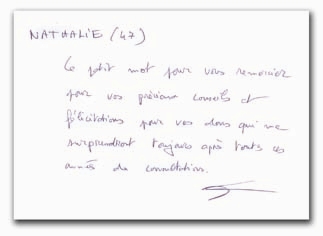 NATHALIE (47)
Ce petit mot pour vous remercier
pour vos précieux conseils et
félicitations pour vos dons qui me
surprendront toujours après toutes ces
années de consultations.